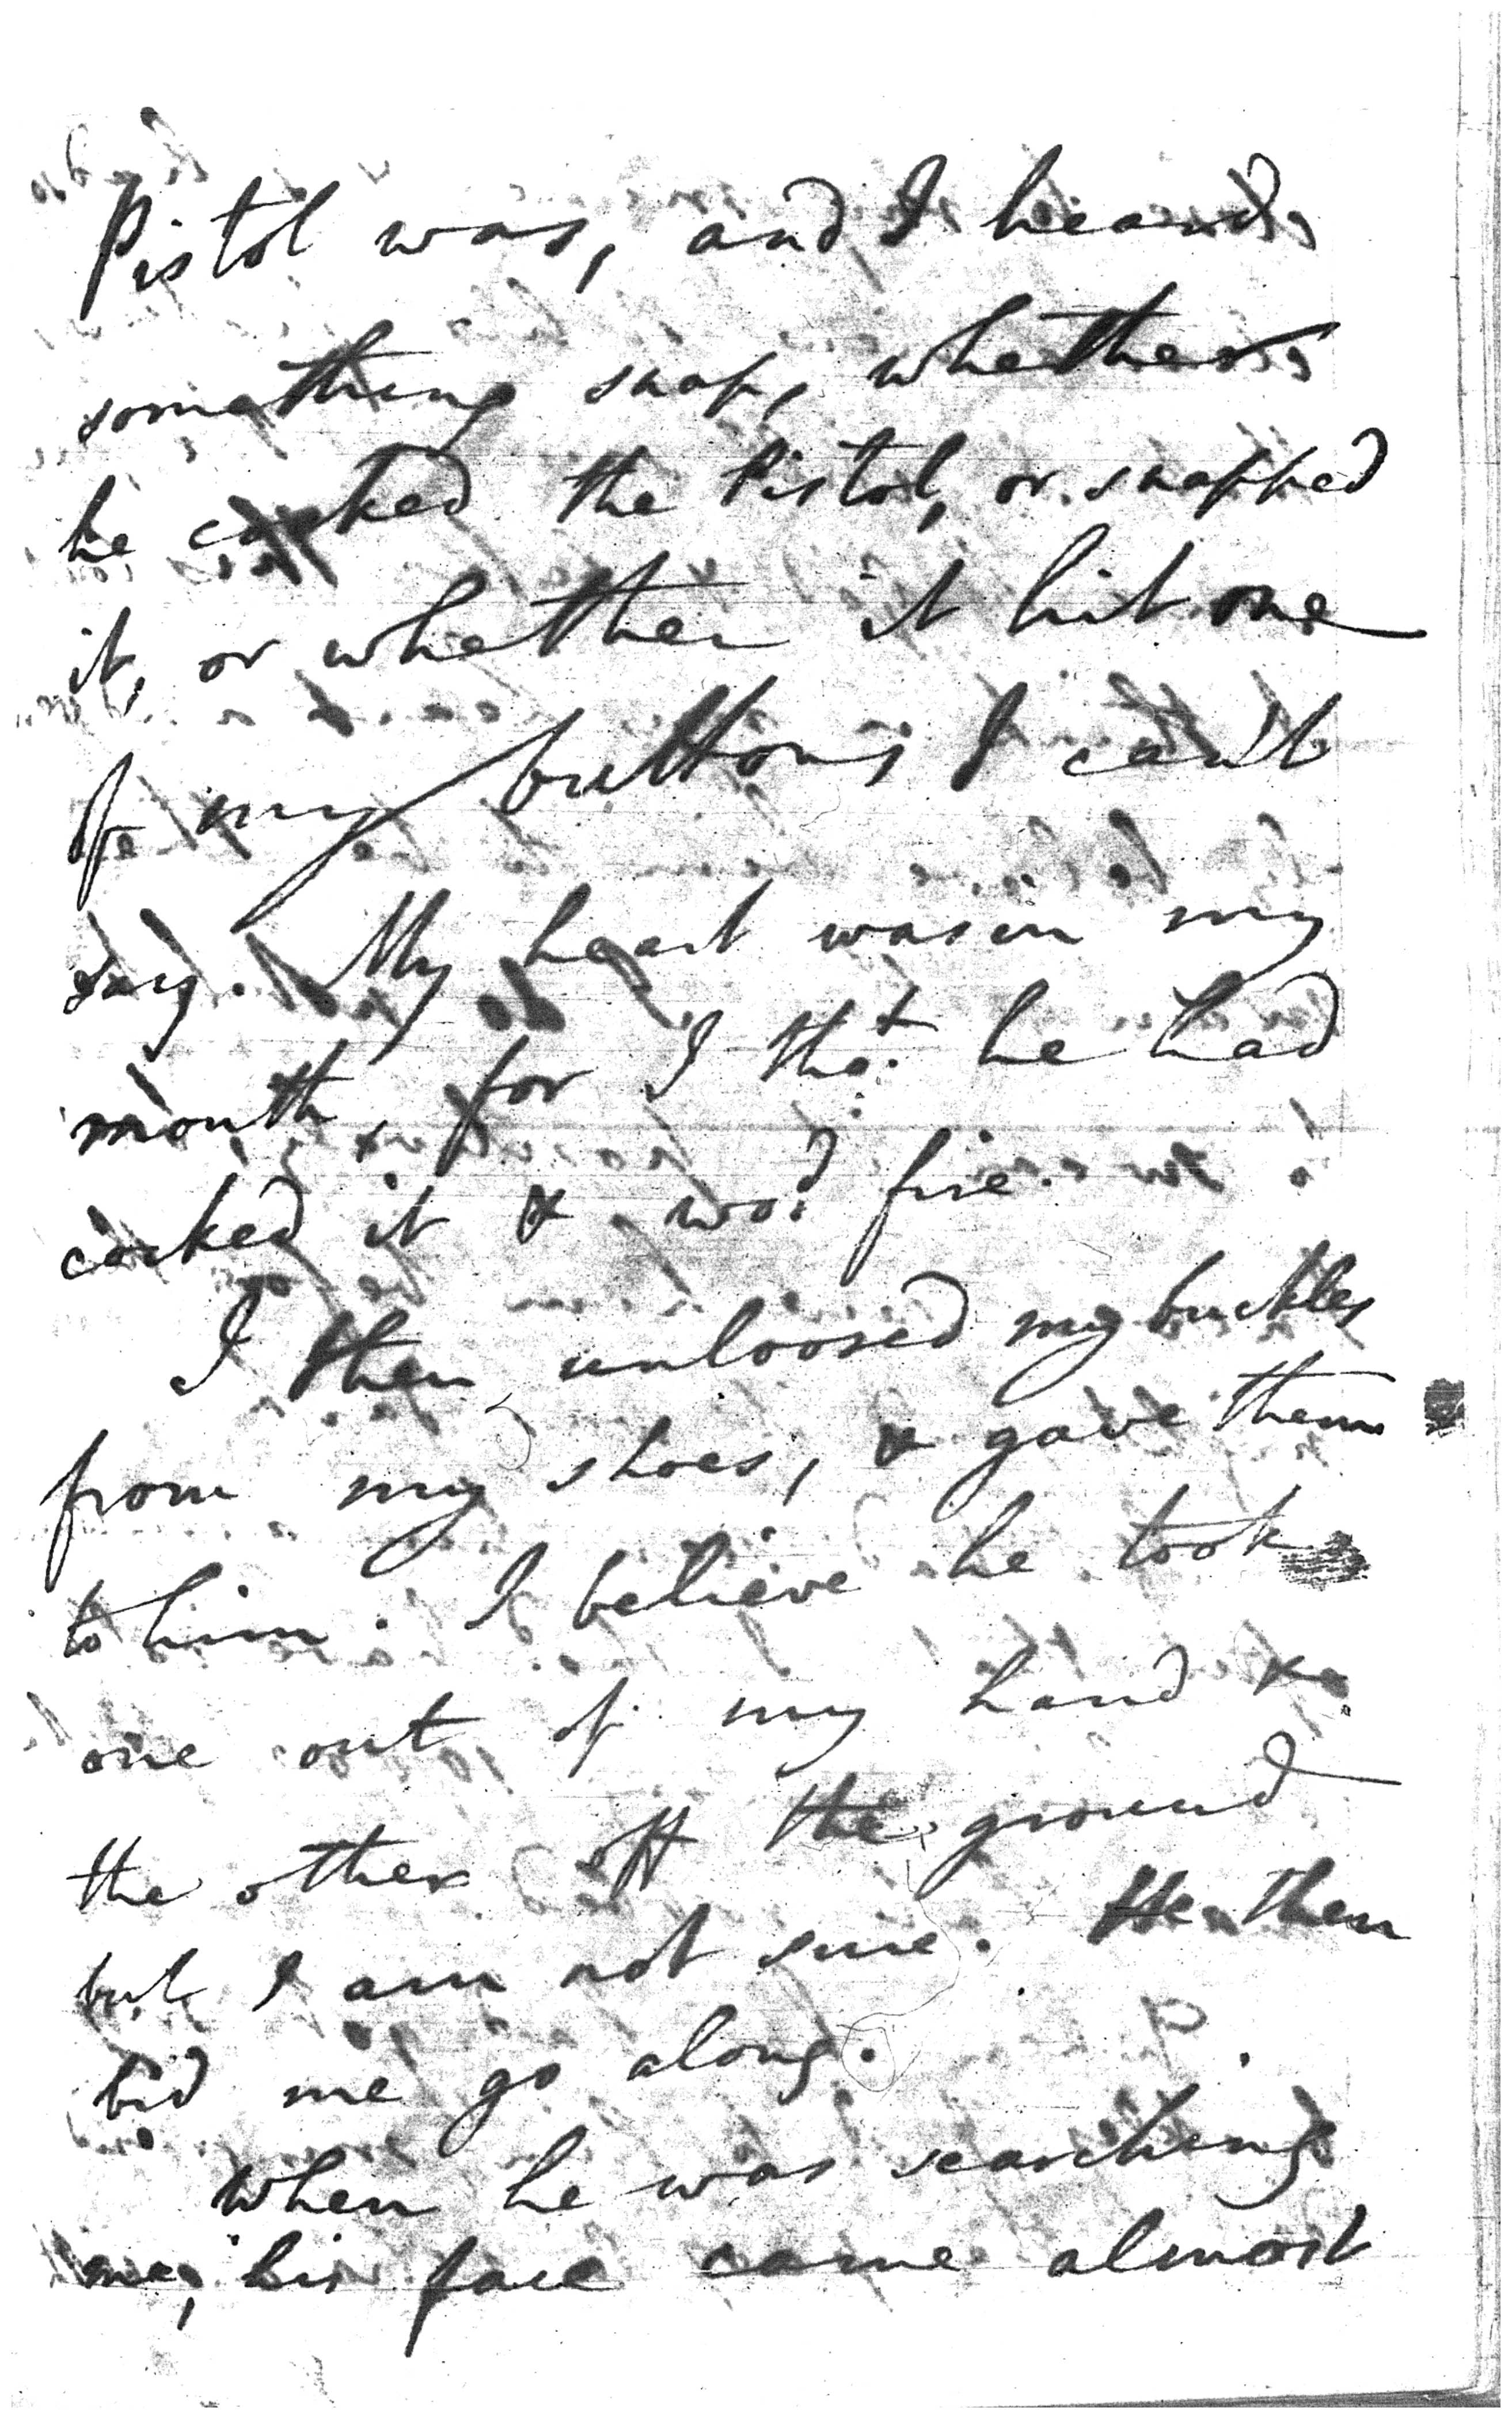 Pistol was, and I heard
something snap, whether
he cocked the Pistol, or snapped
it, or whether it hit one
of my buttons I can't
say. My heart was in my
mouth, for I tho.t he had
cocked it & wo.d fire.
I then unloosed my buckles
from my shoes, & gave them
to him. I believe he took
one out of my hand &
the other off the ground
but I am not sure. He then
bid me go along.
When he was searching
me, his face came almost